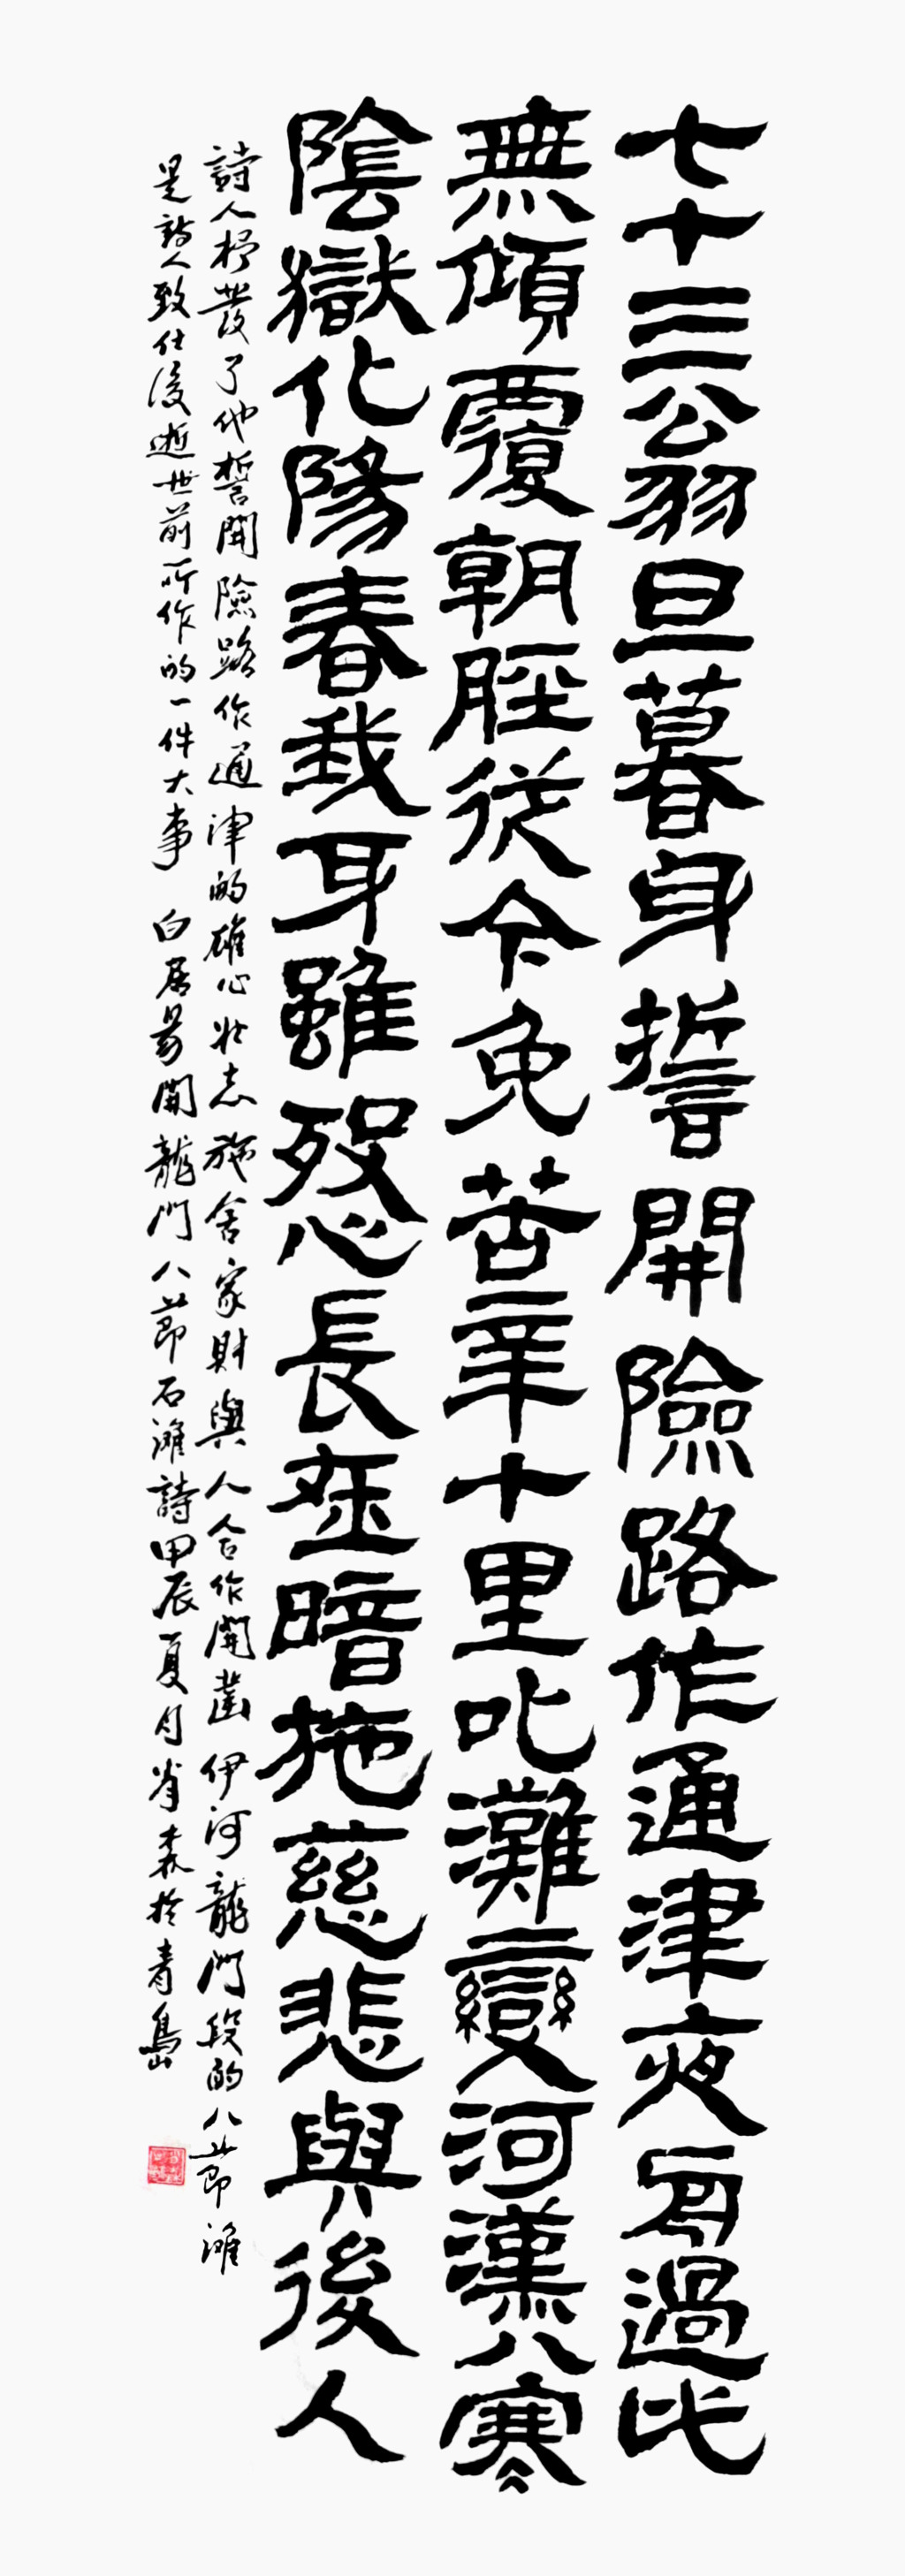 七十三翁旦暮身誓開險路作通津夜舟過此
無傾覆朝脛從今免苦辛十里叱灘變河漢八寒
陰獄化陽春我耳雖歿心長在暗施慈悲與後人
詩人抒發了他誓開險路作通津的雄心壯志施舍家財與人合作開鑿伊河龍門段的八節灘
是詩人致仕後逝世前所作的一件大事 白居易開龍門八節石灘詩甲辰夏月肖森於青島